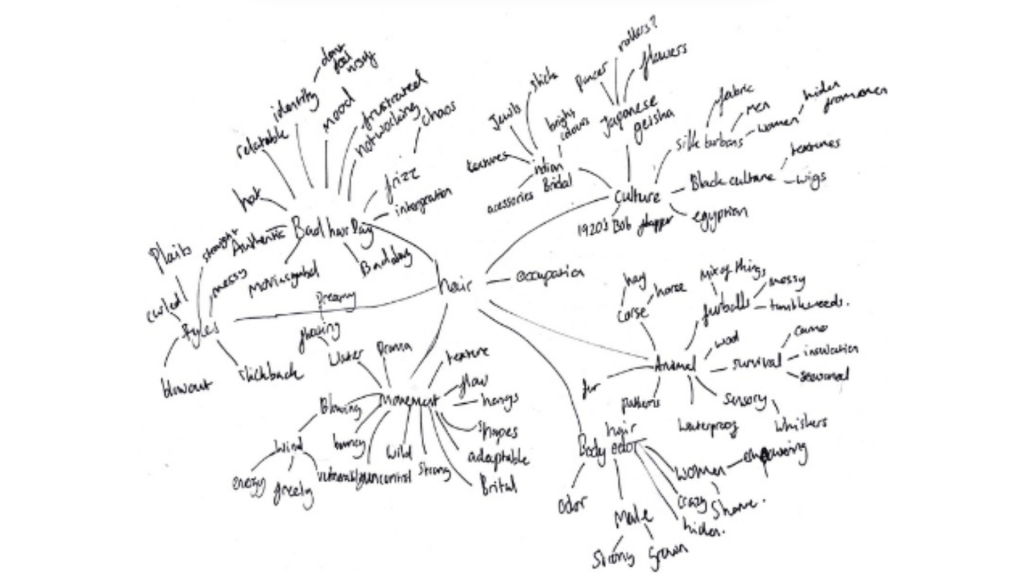 dont
feel
identity
mood
relatable
frustrated
not working
chaos
hot
frizz
Authentic
Bad hair Day
Bad day
Plaits
straight
messy
curled
styles
blowout
slickback
hair
dreamy
floating
Water
Drama
texture
flow
hangs
shapes
adaptable
Movement
Blowing
Wind
energy
bouncy
wild
uncontrol
strong
rollers?
flowers
Japanese
geisha
sticks
Jewls
bright
colours
textures
indian
Bridal
acessories
Culture
1920's Bob flapper
egyptian
fabric
men
women
silk turbans
hiden
Black culture
textures
wigs
occupation
hay
horse
corse
mix of things
furballs
messy
tumbleweeds.
Animal
wool
survival
camo
insulation
seasonal
fur
patterns
waterproof
sensory
whiskers
Body hair
odor
odor
women
empowering
crazy
shame.
hiden.
Male
Strong
Grown